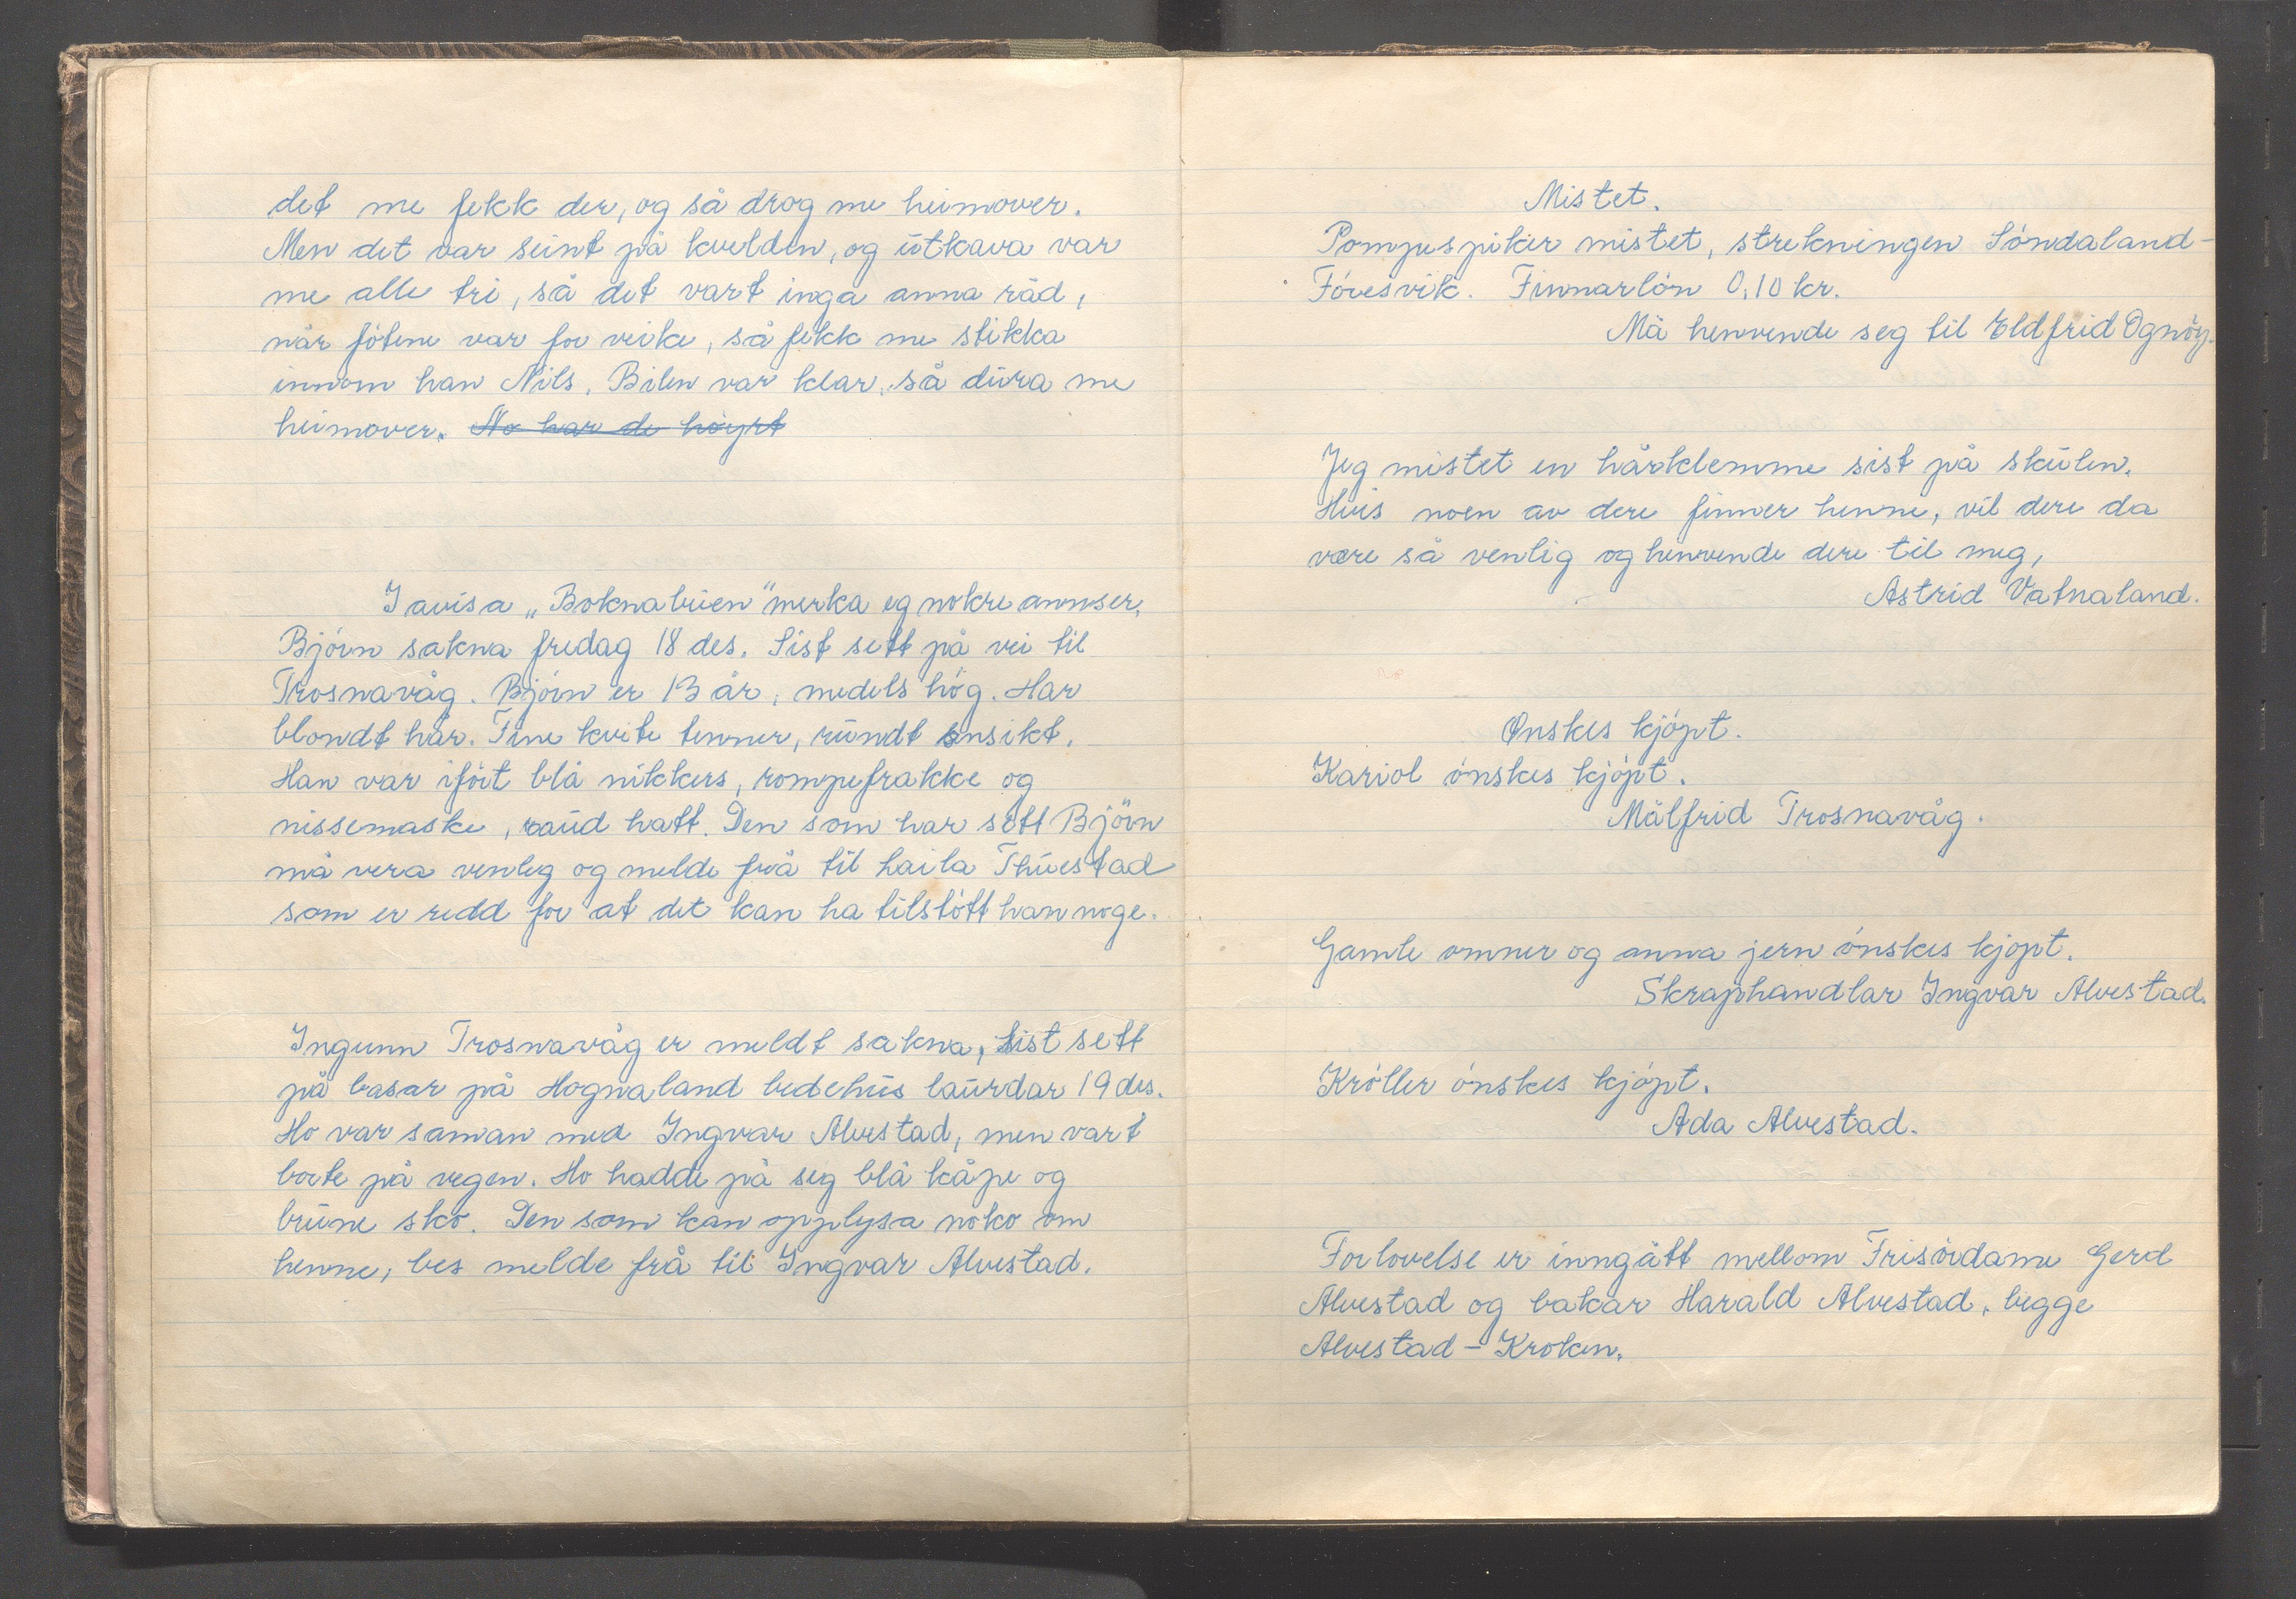 det me fekk der, og så drog me heimover.
Men det var seint på kvelden, og utkava var
me alle tri, så det vart inga anna råd,
når fótene var for veike, så fekk me stikka
innom han Nils. Bilen var klar, så dura me
heimover. No har de hóyrt
I avisa „Boknabuen" merka eg nokre annser.
Bjórn sakna fredag 18 des. Sist sett på vei til
Trosnavåg. Bjórn er 13 år, medels hóg. Har
blondt hår. Fine kvite tenner, rundt ansikt.
Han var ifórt blå nikkers, rompefrakke og
nissemaske, raud hatt. Den som har sett Bjórn
må vera venleg og melde frå til Laila Thuestad
som er redd for at det kan ha tilstótt han noge.
Ingunn Trosnavåg er meldt sakna, sist sett
på basar på Hognaland bedehus laurdar 19 des.
Ho var saman med Ingvar Alvestad, men vart
borte på vegen. Ho hadde på seg blå kåpe og
brune sko. Den som kan opplysa noko om
henne, bes melde frå til Ingvar Alvestad.
Mistet.
Pompespiker mistet, strekningen Sóndaland-
Fóresvik. Finnarlón 0,10 kr.
Må henvende seg til Eldfrid Ognóy.
Jeg mistet en hårklemme sist på skulen.
Hvis noen av dere finner henne, vil dere da
være så venlig og henvende dere til meg,
Astrid Vatnaland.
Ønskes kjópt.
Kariol ónskes kjópt.
Målfrid Trosnavåg.
Gamle omner og anna jern ónskes kjopt.
Skraphandlar Ingvar Alvestad.
Króller ónskes kjópt.
Ada Alvestad.
Forlovelse er inngått mellom Frisórdame Gerd
Alvestad og bakar Harald Alvestad, begge
Alvestad - Kroken.